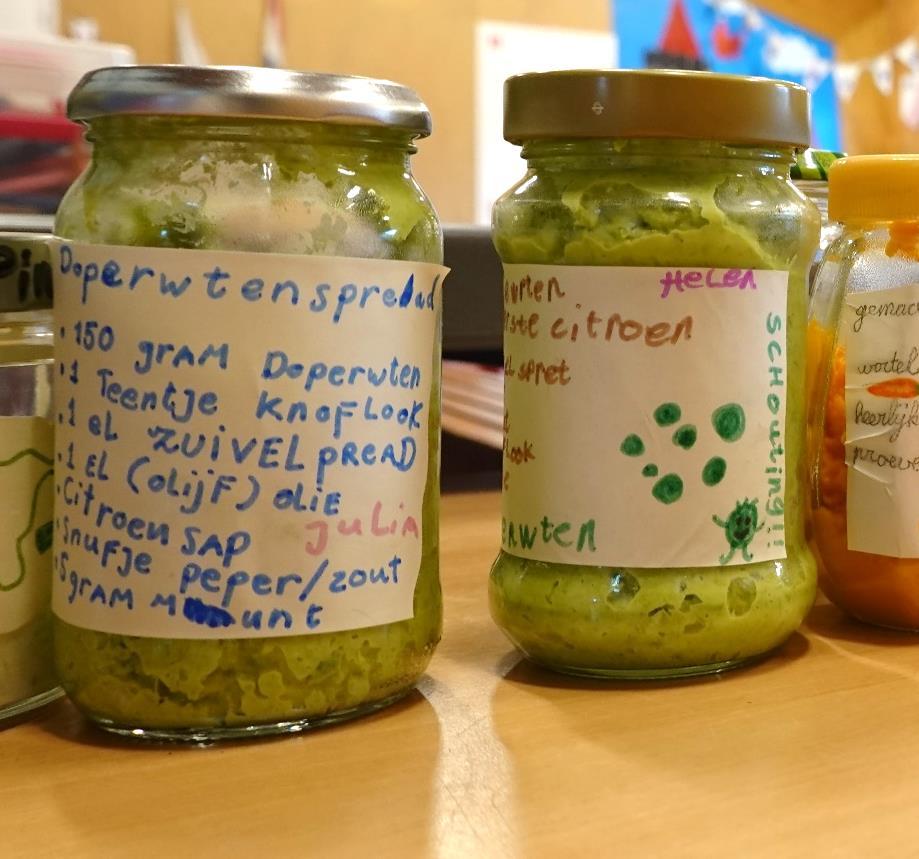 Pin
Doperwtenspredad
• 150 gram Doperwten
• 1 Teentje knoflook
• 1 el zuivelpread
• 1 el (olijf) olie
• Citroen sap
Julia
• snufje peper/zout
• 5 gram munt
Helen
citroen
spret
look
SCHOUTING!!
gemac
wortel
heerlijk
proeve